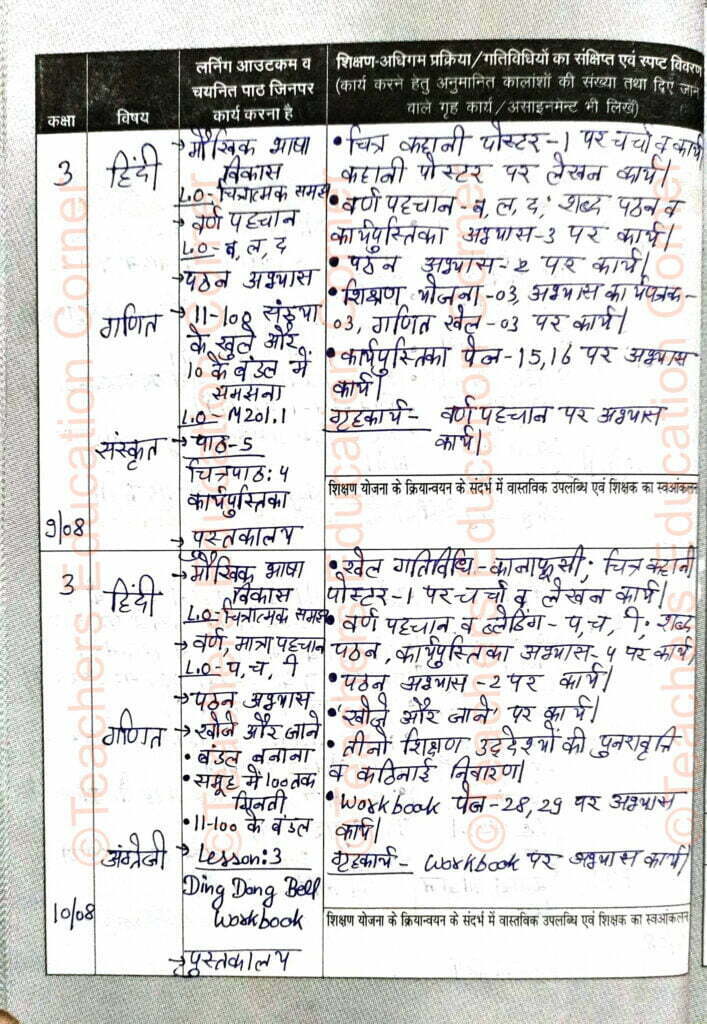 कक्षा
विषय
लर्निंग आउटकम व
चयनित पाठ जिनपर
कार्य करना है
शिक्षण-अधिगम प्रक्रिया/गतिविधियों का संक्षिप्त एवं स्पष्ट विवरण
(कार्य करने हेतु अनुमानित कालांशों की संख्या तथा दिए जाने
वाले गृह कार्य/असाइनमेन्ट भी लिखें)
3
हिंदी
→ मौखिक भाषा
विकास
L.O- चित्रात्मक समझ
→ वर्ण पहचान
L.O- ब, ल, द
→ पठन अभ्यास
गणित
→ 11-100 संख्या
के खुले और
10 के बंडल में
समझना
L.O- M201.1
संस्कृत
→ पाठ-5
चित्रपाठ: 4
कार्यपुस्तिका
→ पुस्तकालय
9/08
• चित्र कहानी पोस्टर-1 पर चर्चा व कार्य
कहानी पोस्टर पर लेखन कार्य।
• वर्ण पहचान - ब, ल, द; शब्द पठन व
कार्यपुस्तिका अभ्यास-3 पर कार्य।
• पठन अभ्यास-2 पर कार्य।
• शिक्षण योजना-03, अभ्यास कार्यपत्रक-
03, गणित खेल-03 पर कार्य।
• कार्यपुस्तिका पेज-15,16 पर अभ्यास
कार्य।
गृहकार्य- वर्ण पहचान पर अभ्यास
कार्य।
शिक्षण योजना के क्रियान्वयन के संदर्भ में वास्तविक उपलब्धि एवं शिक्षक का स्वआंकलन
3
हिंदी
→ मौखिक भाषा
विकास
L.O- चित्रात्मक समझ
→ वर्ण, मात्रा पहचान
L.O- प, च, ी
→ पठन अभ्यास
गणित
→ खोजे और जाने
• बंडल बनाना
• समूह में 100 तक
गिनती
• 11-100 के बंडल
अंग्रेजी
→ Lesson:3
Ding Dong Bell
Workbook
→ पुस्तकालय
10/08
• खेल गतिविधि - कानाफूसी; चित्र कहानी
पोस्टर-1 पर चर्चा व लेखन कार्य।
• वर्ण पहचान व ब्लेंडिंग - प, च, ी; शब्द
पठन, कार्यपुस्तिका अभ्यास-4 पर कार्य,
• पठन अभ्यास-2 पर कार्य।
• 'खोजे और जाने' पर कार्य।
• तीनो शिक्षण उद्देश्यों की पुनरावृत्ति
व कठिनाई निवारण।
• Workbook पेज-28,29 पर अभ्यास
कार्य।
गृहकार्य- Workbook पर अभ्यास कार्य।
शिक्षण योजना के क्रियान्वयन के संदर्भ में वास्तविक उपलब्धि एवं शिक्षक का स्वआंकलन
©Teachers Education Corner
©Teachers Education Corner
©Teachers Education Corner
©Teachers Education Corner
©Teachers Education Corner